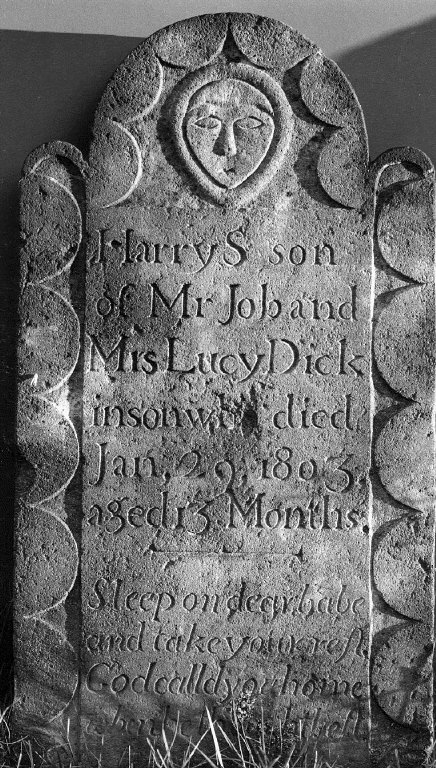 Harry S son
of Mr Job and
Mrs Lucy Dick
inson who died
Jan, 29, 1803,
aged 13 Months.
Sleep on dear babe
and take your rest
God calld you home
when he